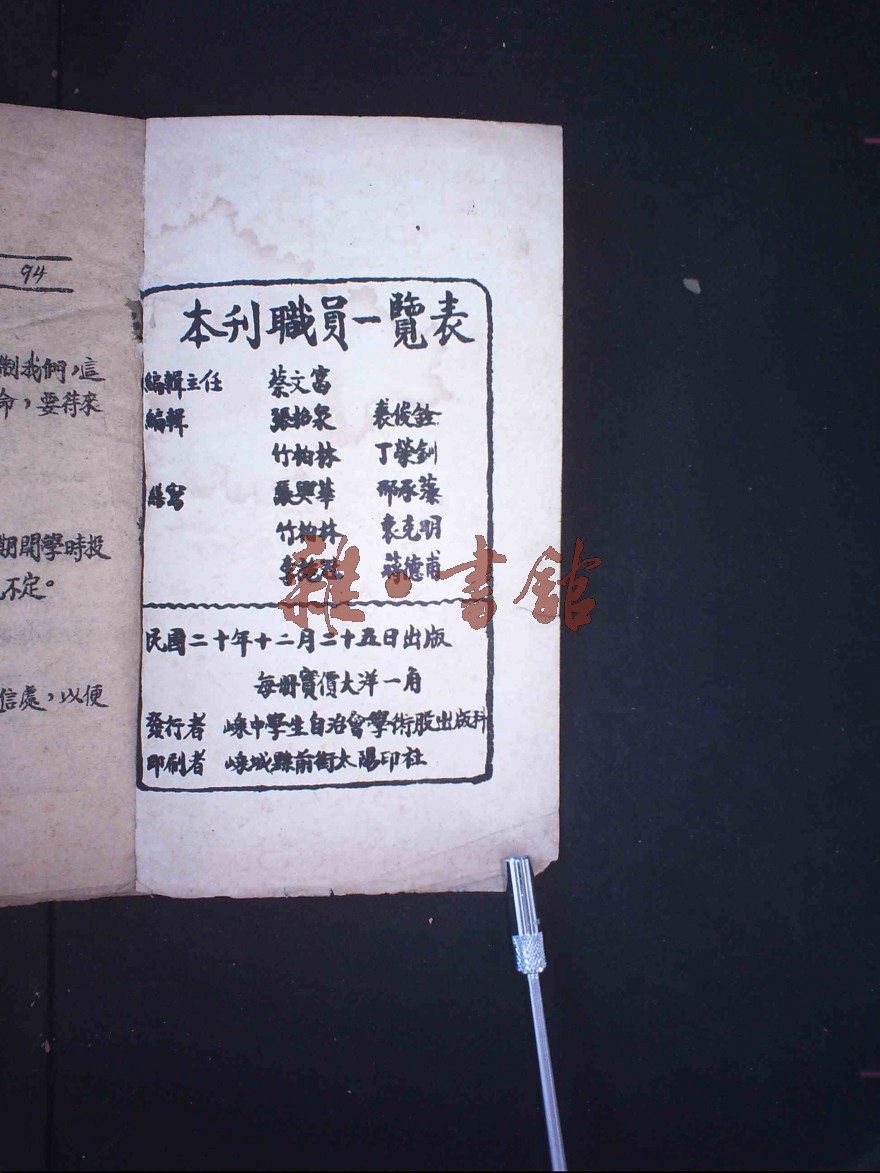 94
制我們，這
命，要待來
期開學時投
不定。
信處，以便
本刊職員一覽表
編輯主任 蔡文富
編輯 張柏泉 裘俊銓
竹柏林 丁榮釗
繕寫 張興華 邢承藻
竹柏林 袁克明
李 蔣德甫
民國二十年十二月二十五日出版
每冊實價大洋一角
發行者 嵊中學生自治會學術股出版科
印刷者 嵊城縣前街太陽印社
雜·書館